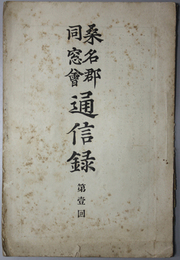 桑名郡
同窓會
通信録
第壹回